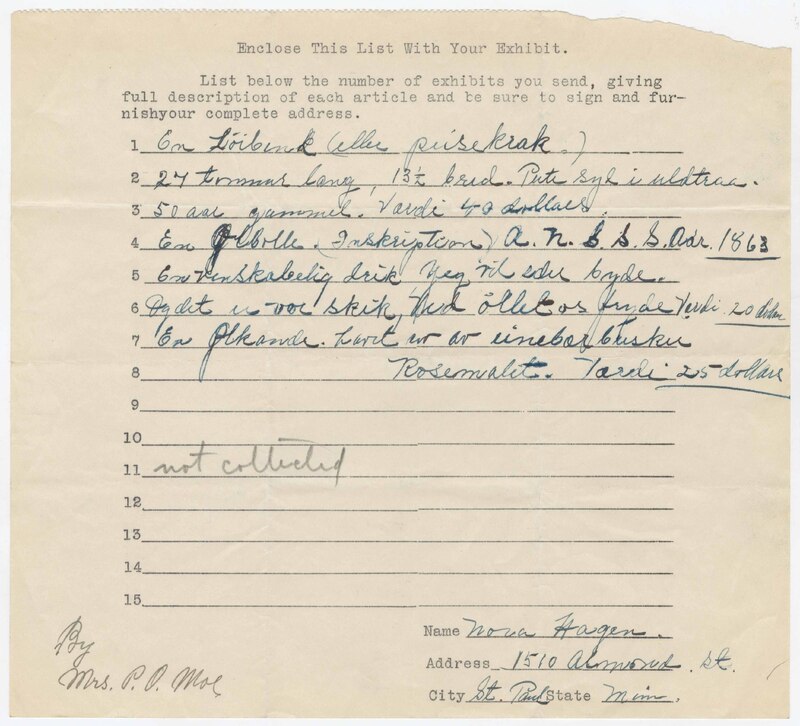 Enclose This List With Your Exhibit.
List below the number of exhibits you send, giving
full description of each article and be sure to sign and fur-
nishyour complete address.
1 En Löibenk (eller peisekrak.)
2 27 tommur lang, 13½ bred. Pute syd i uldtraa.
3 50 aar gammel. Vardi 40 dollars.
4 En Ølbolle. (Inskription) A. N. S. S. S. Aar. 1863
5 En venskabelig drik jeg vil eder byde.
6 Dy det er vor skik, Ved öllet os fryde Vardi 20 dollar
7 En Ølkande. Lavet er av einebær busker
8 Rosemalet. Vardi 25 dollars
9
10
11 not collected
12
13
14
15
By
Mrs. P. O. Moe
Name Nora Hagen.
Address 1510 Almond. St.
City St. Paul State Minn.